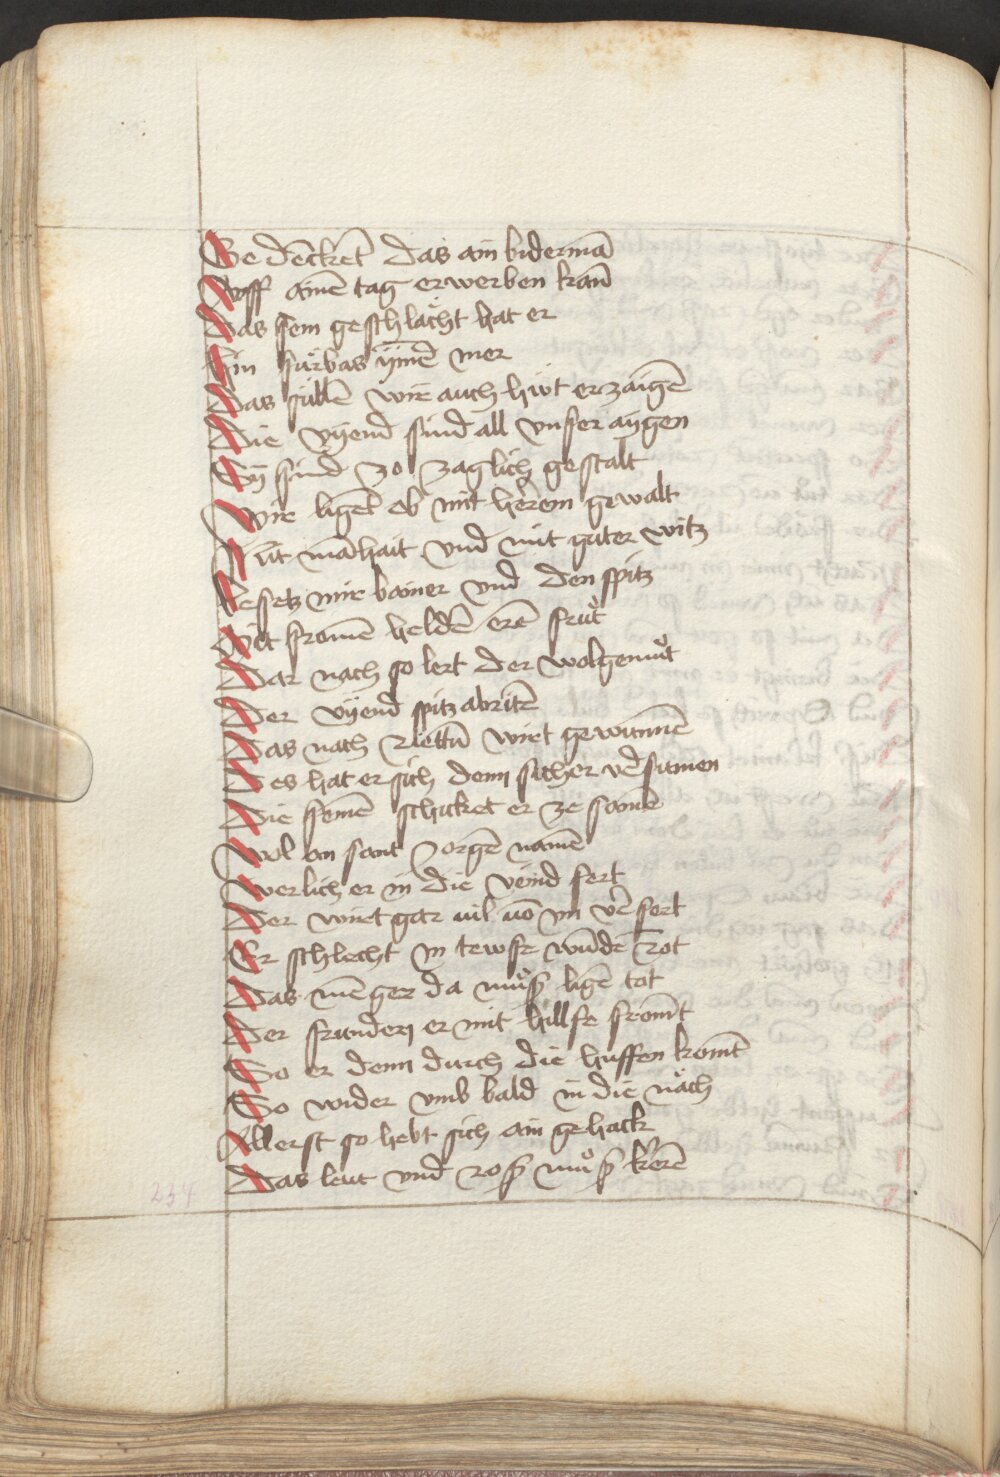 Gedēcket das ain bidermā
Vff ainē tag erwerben kan̄
Das sein geschlächt hat er
Hin fürbas ÿmē mer
Das süllē wir auch hüt erzaigē
Die vÿend sind all vnser aÿgen
Sÿ sind zo zaglich gestalt
Wir ligēt ob mit herem gewalt
Mit māhait vnd mit guter witz
Besetz mir baner vnd den spitz
Mit fromē heldē erē frůt
Dar nach so lert der wolgemůt
Der vÿend spitz abritē
Das nach wirt gewunnē
Des hat er sich denn sicher v̄sunnen
Die seinē schicket er ze samē
Wol an sant Jorgē namē
Werlich er in die veind fert
Der wirt gar uil uō im v̄sert
Er schlecht in tewfe wūdē rot
Das mēger da můß ligē tot
Der frundē er mit hillfe fromt
So er denn durch die huffen komt
So wider vmb bald in die näch
Allerst so hebt sich ain gehack
Das leut vnd roß můß kerē
234